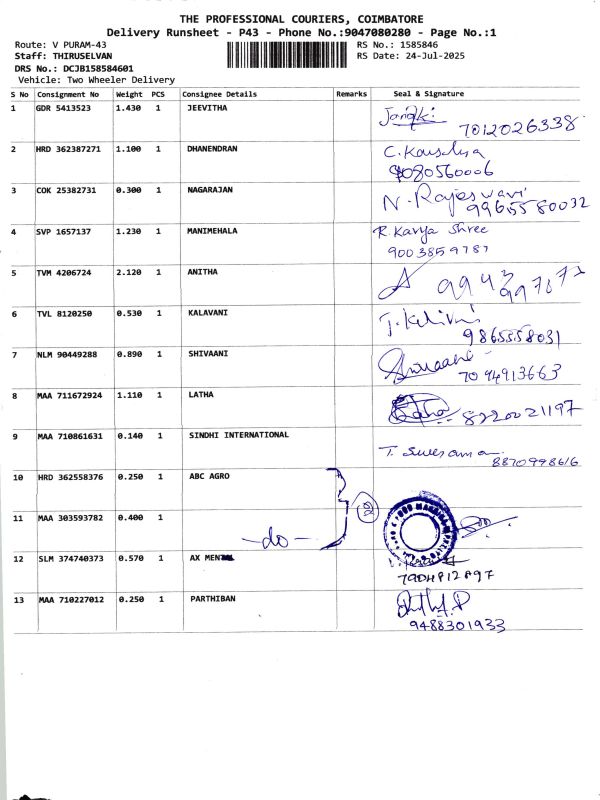 THE PROFESSIONAL COURIERS, COIMBATORE
Delivery Runsheet - P43 - Phone No.:9047080280 - Page No.:1
Route: V PURAM-43 RS No.: 1585846
Staff: THIRUSELVAN RS Date: 24-Jul-2025
DRS No.: DCJB158584601
Vehicle: Two Wheeler Delivery
S No Consignment No Weight PCS Consignee Details Remarks Seal & Signature
1 GDR 5413523 1.430 1 JEEVITHA
7012026338
2 HRD 362387271 1.100 1 DHANENDRAN C. Kausalya
9080560006
3 COK 25382731 0.300 1 NAGARAJAN N. Rajeswari
9965580032
4 SVP 1657137 1.230 1 MANIMEHALA R. Kavya Shree
9003859787
5 TVM 4206724 2.120 1 ANITHA
6 TVL 8120250 0.530 1 KALAVANI
9865558031
7 NLM 90449288 0.890 1 SHIVAANI Shivaani
7094913663
8 MAA 711672924 1.110 1 LATHA Latha 8220021197
9 MAA 710861631 0.140 1 SINDHI INTERNATIONAL
8870998616
10 HRD 362558376 0.250 1 ABC AGRO
11 MAA 303593782 0.400 1 -do-
12 SLM 374740373 0.570 1 AX MENTAL
7904812897
13 MAA 710227012 0.250 1 PARTHIBAN
9488301933